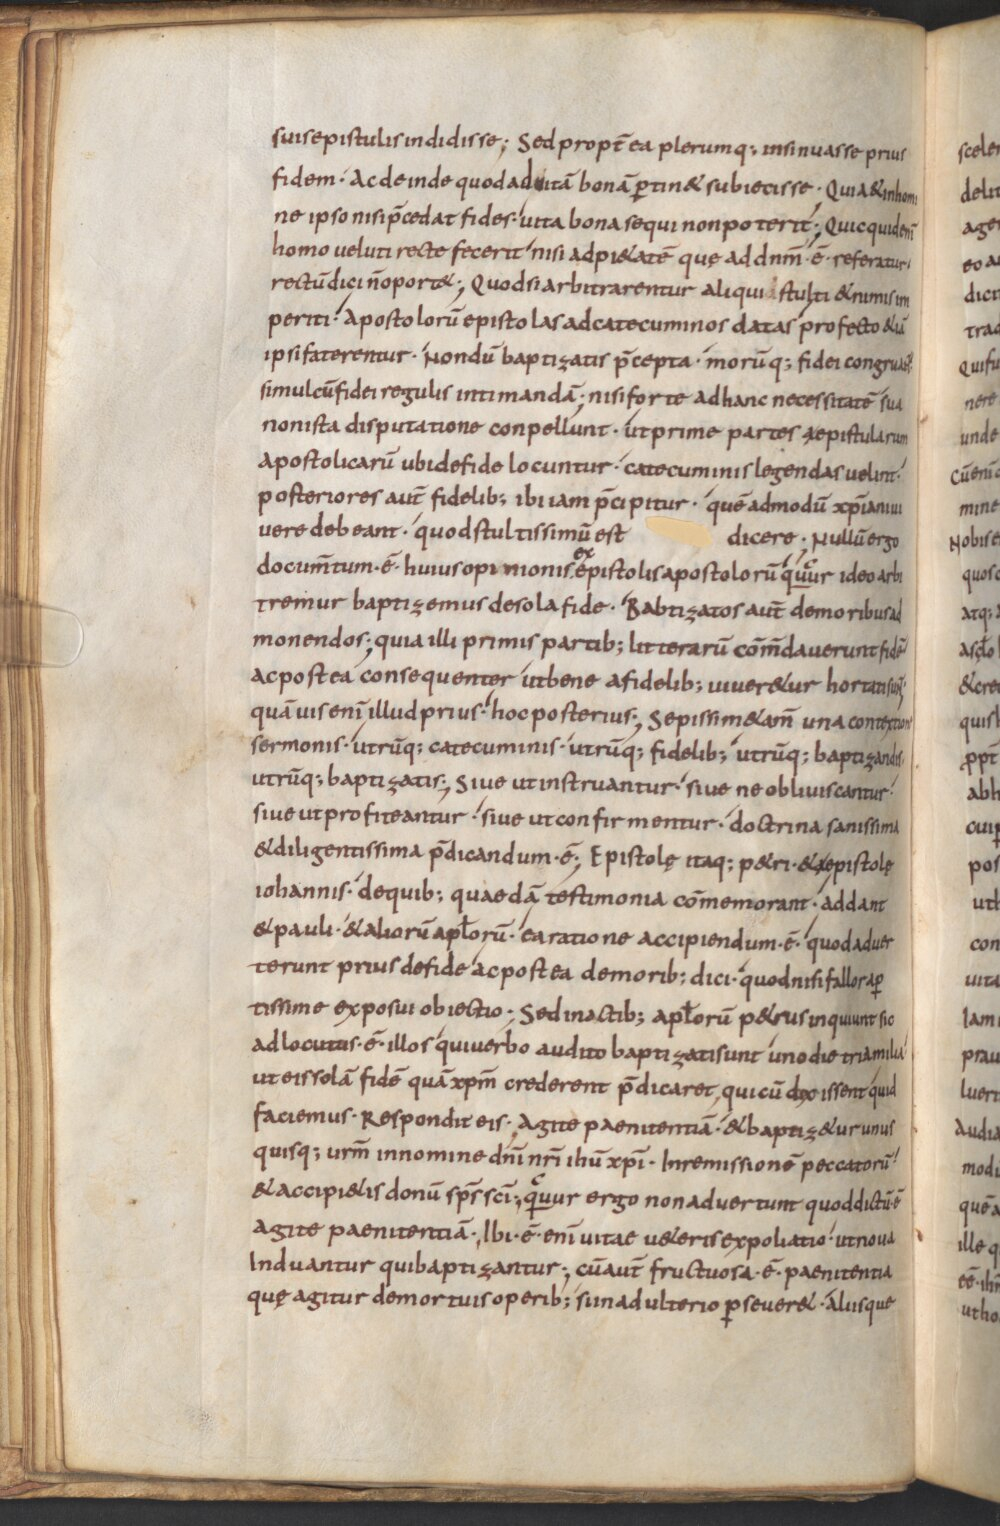 suis epistulis indidisse; Sed propt̄ ea plerumq; insinuasse prius
fidem · Ac deinde quod ad uitā bonā ꝑtin& subiecisse · Quia & in homi
ne ipso nisi p̄cedat fides · uita bona sequi non poterit; Quicquid enī
homo ueluti recte fecerit nisi ad pi&atē quę ad dnm̄ · ē · referatur ·
rectū dici n̄ oport&; Quod si arbitrarentur aliqui stulti & nimis im
periti · Apostolorū epistolas ad catecuminos datas profecto &iā
ipsi faterentur · Nondū baptizatis p̄cepta · morūq; fidei
simul cū fidei regulis intimandā; nisi forte ad hanc necessitatē sua
non ista disputatione conpellunt · ut prime partes epistularum
apostolicarū ubi de fide locuntur · catecuminis legendas uelint ·
posteriores aut̄ fidelib; ibi iam p̄cipitur · quē admodū xp̄iani ui
uere debeant · quod stultissimū est dicere · Nullū ergo
docum̄tum · ē · huius opinionis ex epistolis apostolorū qur ideo arbi
tremur baptizemus de sola fide · Babtizatos aut̄ de moribus ad
monendos; quia illi primis partib; litterarū cōm̄dauerunt fidē
ac postea consequenter ut bene a fidelib; uiuer&ur hortati sunt;
quāuis enī illud prius · hoc posterius; Sepissim& am̄ una contextione
sermonis · utrūq; catecuminis · utrūq; fidelib; utrūq; baptizandis ·
utrūq; baptizatis; Siue ut instruantur · siue ne obliuiscantur ·
siue ut profiteantur · siue ut confirmentur · doctrina sanissima
& diligentissima p̄dicandum · ē; Epistolę itaq; p&ri · & epistolę
iohannis · de quib; quaedā testimonia cōmemorant · addant
& pauli · & aliorū apl̄orū · ea ratione accipiendum · ē · quod aduer
terunt prius de fide ac postea de morib; dici · quod nisi fallor aꝑ
tissime exposui obiectio; Sed in actib; apl̄orū p&rus inquiunt sic
adlocutus · ē · illos qui uerbo audito baptizati sunt uno die tria milia
ut eis solā fidē quā xpm̄ crederent p̄dicaret, qui cū dixissent quid
faciemus · Respondit eis · Agite paenitentiā · & baptiz&ur unus
quisq; urm̄ in nomine dnī nrī ihū xpī · In remissionē peccatorū ·
& accipi&is donū sp̄s scī; qur ergo non aduertunt quod dictū ē
agite paenitentiā · Ibi · ē · enī uitae u&eris expoliatio · ut noua
Induantur qui baptizantur; cū aut̄ fructuosa · ē · paenitentia
quę agitur de mortuis operib; si in adulterio ꝑseuer& · aliisque